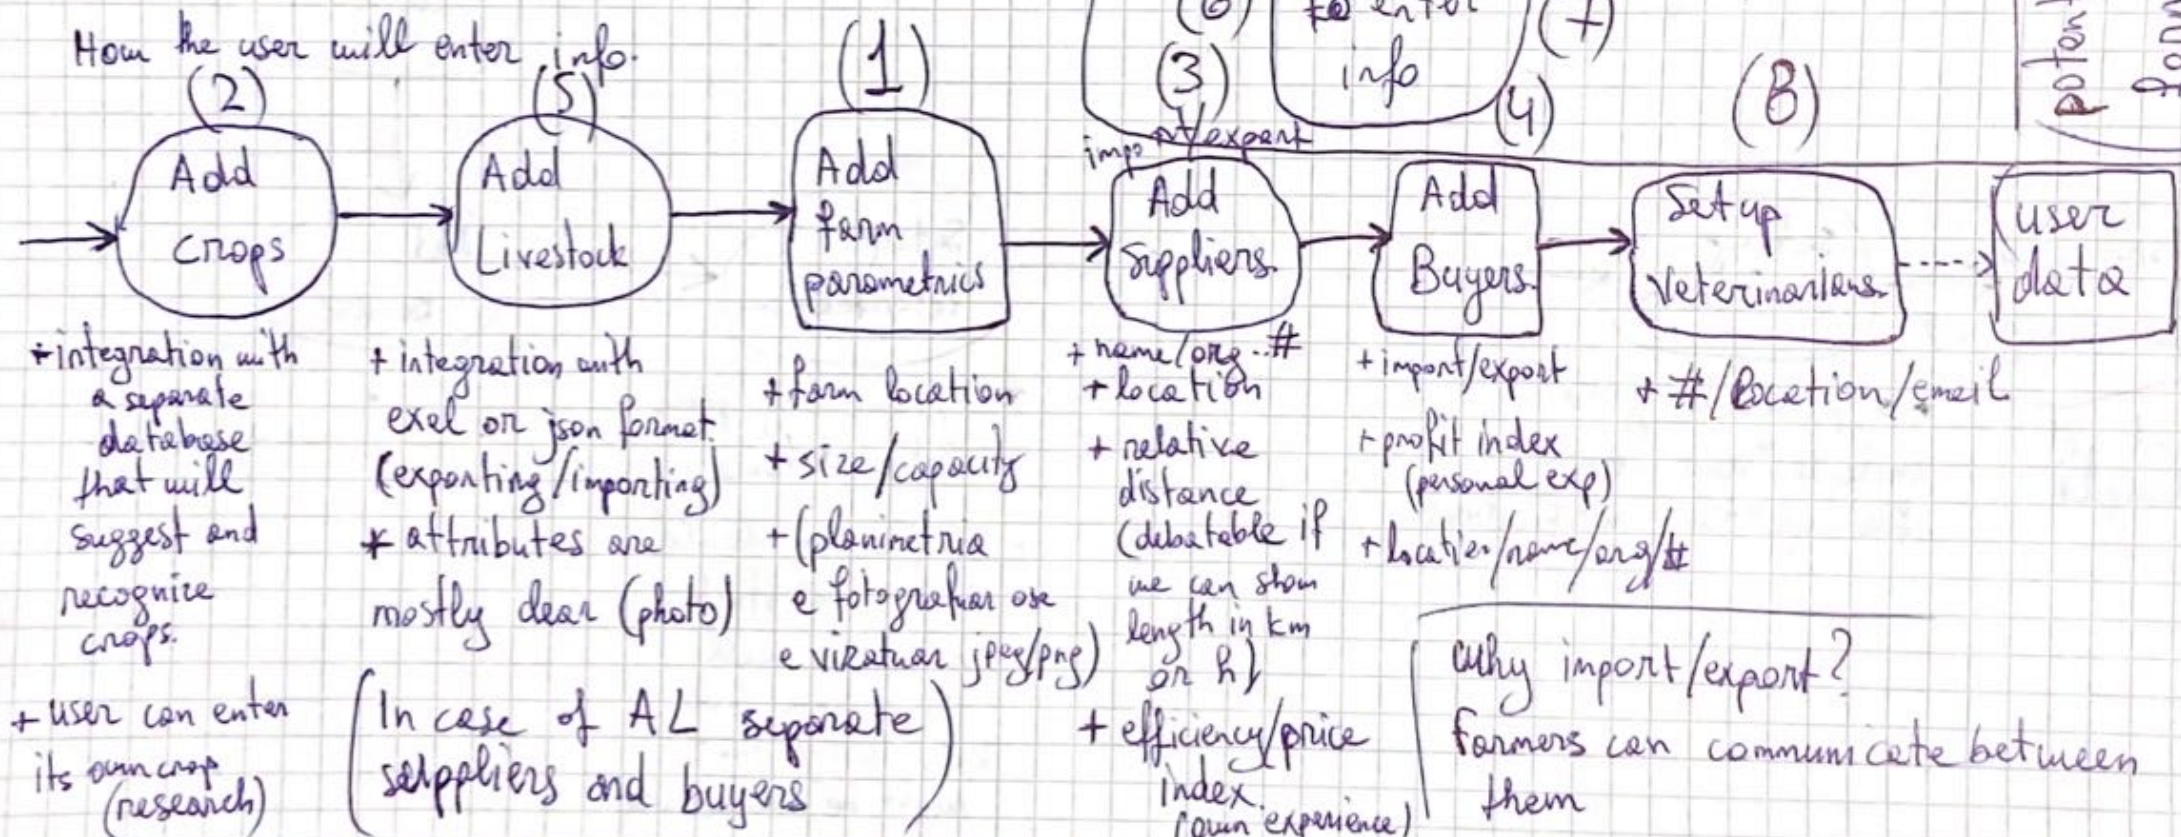 How the user will enter info.
(2)
(5)
(1)
(6)
(3)
to enter
info
(7)
(4)
(8)
potent
import/export
Add
crops
Add
Livestock
Add
farm
parametrics
Add
Suppliers.
Add
Buyers.
Set up
Veterinarians.
user
data
+ integration with
a separate
database
that will
suggest and
recognize
crops.
+ user can enter
its own crop
(research)
+ integration with
exel or json format.
(exporting/importing)
* attributes are
mostly clear (photo)
(In case of AL separate
suppliers and buyers)
+ farm location
+ size/capacity
+ (planimetria
e fotografuar ose
e vizatuar jpeg/png)
+ name/org..#
+ location
+ relative
distance
(debatable if
we can show
length in km
or h)
+ efficiency/price
index.
(own experience)
+ import/export
+ profit index
(personal exp)
+ location/name/org/#
+ #/location/email
Why import/export?
Farmers can communicate between
them